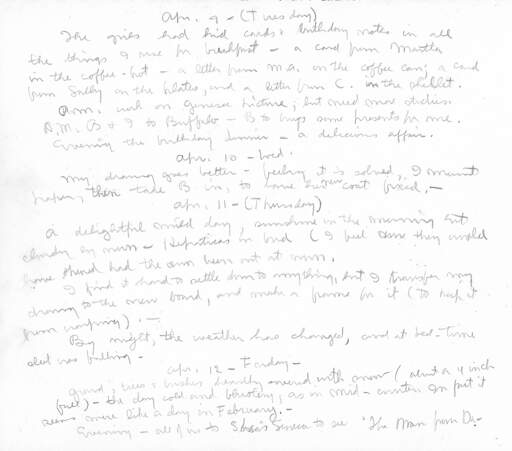 Apr. 9 - (Tuesday)
The girls had hid cards & birthday notes in all
the things I use for breakfast - a card from Martha
in the coffee-pot - a letter from M.A. in the coffee can; a card
from Sally on the plates, and a letter from C. in the skillet.
A.M. work on Genesee picture; but need more studies.
P.M. B & I to Buffalo - B to buy some presents for me.
Evening the birthday dinner - a delicious affair.
Apr. 10 - Wed.
My drawing goes better - feeling it is solved, I mount
paper, then take B in, to have her new coat fixed. -
Apr. 11 - (Thursday)
A delightful mild day, sunshine in the morning but
cloudy by noon - Hepaticas in bud (I feel sure they would
have opened had the sun been out at noon.
I find it hard to settle down to anything, but I transfer my
drawing to the new board, and make a frame for it (to keep it
from warping). -
By night, the weather has changed, and at bed-time
sleet was falling -
Apr. 12 - Friday -
ground, trees & bushes heavily covered with snow (about a 4 inch
fall) - the day cold and blustery, as in mid-winter. In fact it
seems more like a day in February. -
Evening - all of us to Seneca to see "The Man from